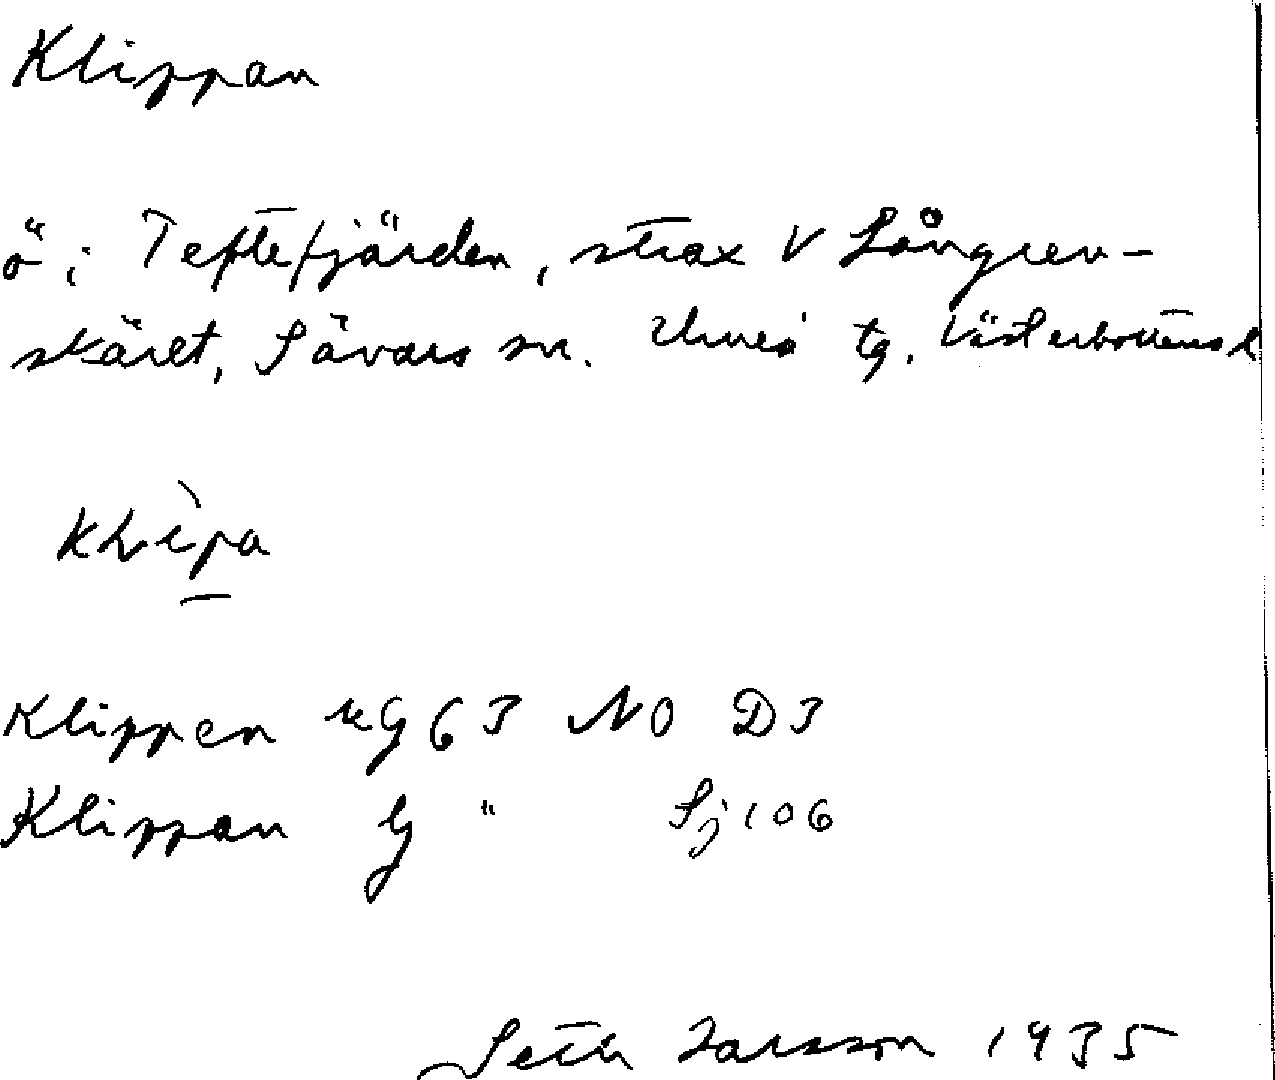 Klippan
ö i Teftefjärden, strax V Långren-
skäret, Sävars sn. Umeå tg. Västerbottens l
Klippen kg 63 NO D3
Klippan " Sj 106
Seth Larsson 1935